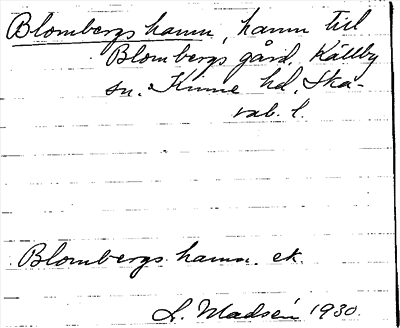 Blombergs hamn, hamn till
Blombergs gård, Källby
sn. Kinne hd, Ska-
rab. l.
Blombergs hamn. ek.
L. Madsén 1930.